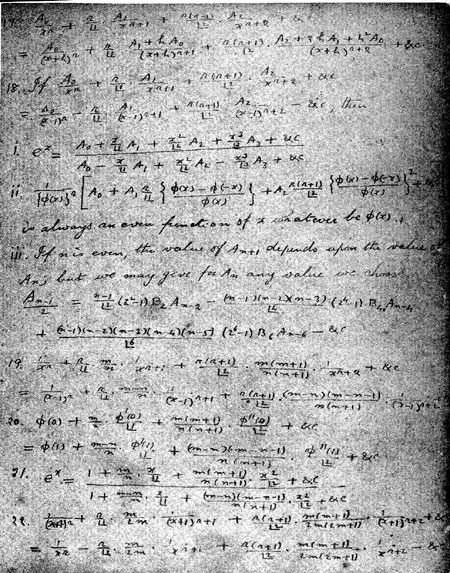 17. A₀/xⁿ + n/⌊1 · A₁/xⁿ⁺¹ + n(n+1)/⌊2 · A₂/xⁿ⁺² + &c
= A₀/(x+h)ⁿ + n/⌊1 · (A₁+hA₀)/(x+h)ⁿ⁺¹ + n(n+1)/⌊2 · (A₂+2hA₁+h²A₀)/(x+h)ⁿ⁺² + &c
18. If A₀/xⁿ + n/⌊1 · A₁/xⁿ⁺¹ + n(n+1)/⌊2 · A₂/xⁿ⁺² + &c
= A₀/(x-1)ⁿ - n/⌊1 · A₁/(x-1)ⁿ⁺¹ + n(n+1)/⌊2 · A₂/(x-1)ⁿ⁺² - &c, then
i. eˣ = (A₀ + x/⌊1 A₁ + x²/⌊2 A₂ + x³/⌊3 A₃ + &c)/(A₀ - x/⌊1 A₁ + x²/⌊2 A₂ - x³/⌊3 A₃ + &c)
ii. 1/{φ(x)}ⁿ [A₀ + A₁ n/⌊1 {(φ(x)-φ(-x))/φ(x)} + A₂ n(n+1)/⌊2 {(φ(x)-φ(-x))/φ(x)}² + &c
is always an even function of x whatever be φ(x).
iii. If n is even, the value of Aₙ₊₁ depends upon the value of
Aₙ; but we may give for Aₙ any value we choose.
Aₙ₋₁/2 = (n-1)/⌊2 (2²-1) B₂ Aₙ₋₂ - (n-1)(n-2)(n-3)/⌊4 (2⁴-1) B₄ Aₙ₋₄
+ (n-1)(n-2)(n-3)(n-4)(n-5)/⌊6 (2⁶-1) B₆ Aₙ₋₆ - &c
19. 1/xⁿ + n/⌊1 · m/n · 1/xⁿ⁺¹ + n(n+1)/⌊2 · m(m+1)/n(n+1) · 1/xⁿ⁺² + &c
= 1/(x-1)ⁿ + n/⌊1 · (m-n)/n · 1/(x-1)ⁿ⁺¹ + n(n+1)/⌊2 · (m-n)(m-n-1)/n(n+1) · 1/(x-1)ⁿ⁺²
20. φ(0) + m/n · φ'(0)/⌊1 + m(m+1)/n(n+1) · φ''(0)/⌊2 + &c
= φ(1) + (m-n)/n · φ'(1)/⌊1 + (m-n)(m-n-1)/n(n+1) · φ''(1)/⌊2 + &c
21. eˣ = (1 + m/n · x/⌊1 + m(m+1)/n(n+1) · x²/⌊2 + &c)/(1 + (m-n)/n · x/⌊1 + (m-n)(m-n-1)/n(n+1) · x²/⌊2 + &c)
22. 1/(x+1)ⁿ + n/⌊1 · m/2m · 1/(x+1)ⁿ⁺¹ + n(n+1)/⌊2 · m(m+1)/2m(2m+1) · 1/(x+1)ⁿ⁺² + &c
= 1/xⁿ - n/⌊1 · m/2m · 1/xⁿ⁺¹ + n(n+1)/⌊2 · m(m+1)/2m(2m+1) · 1/xⁿ⁺² - &c